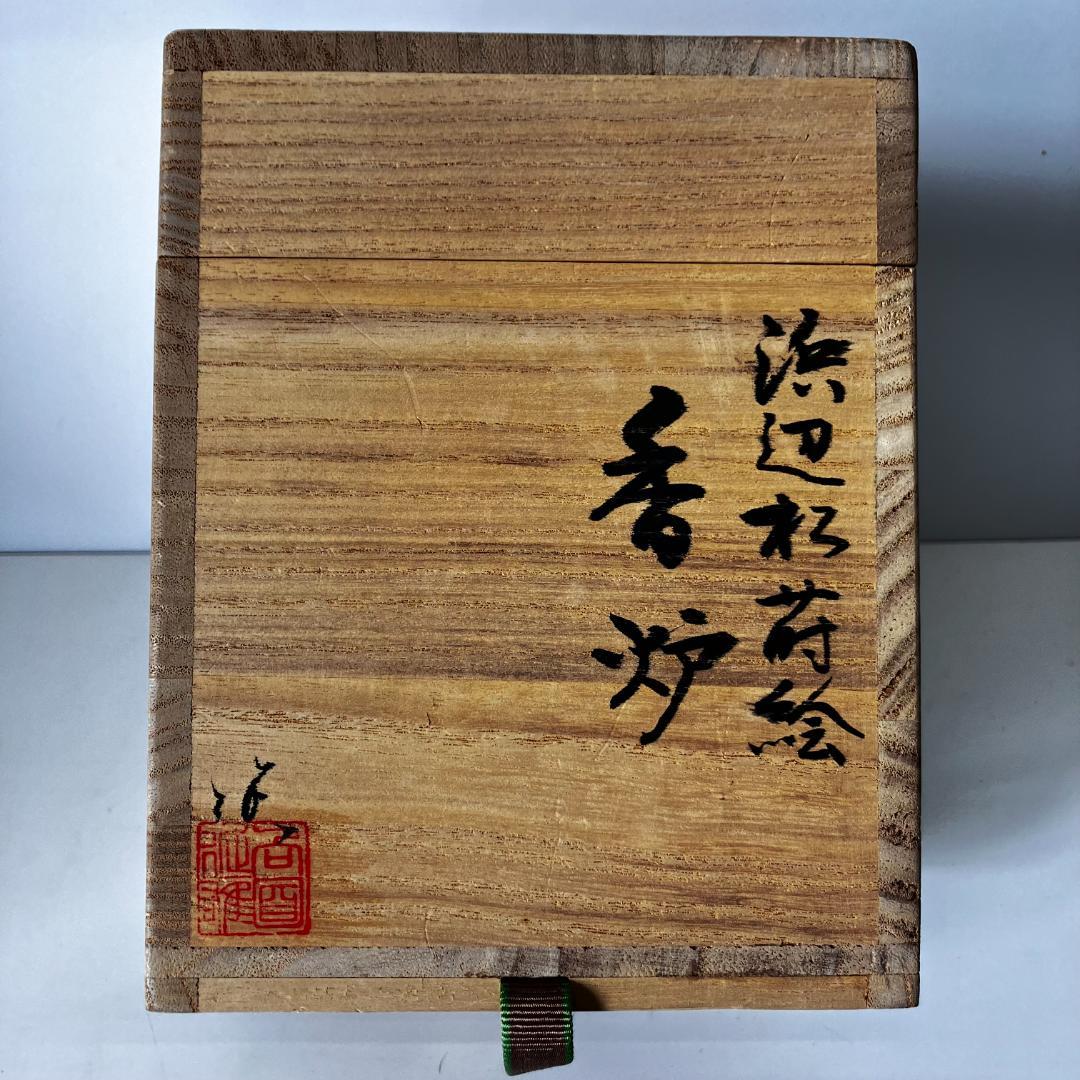 浜辺松蒔絵
香炉